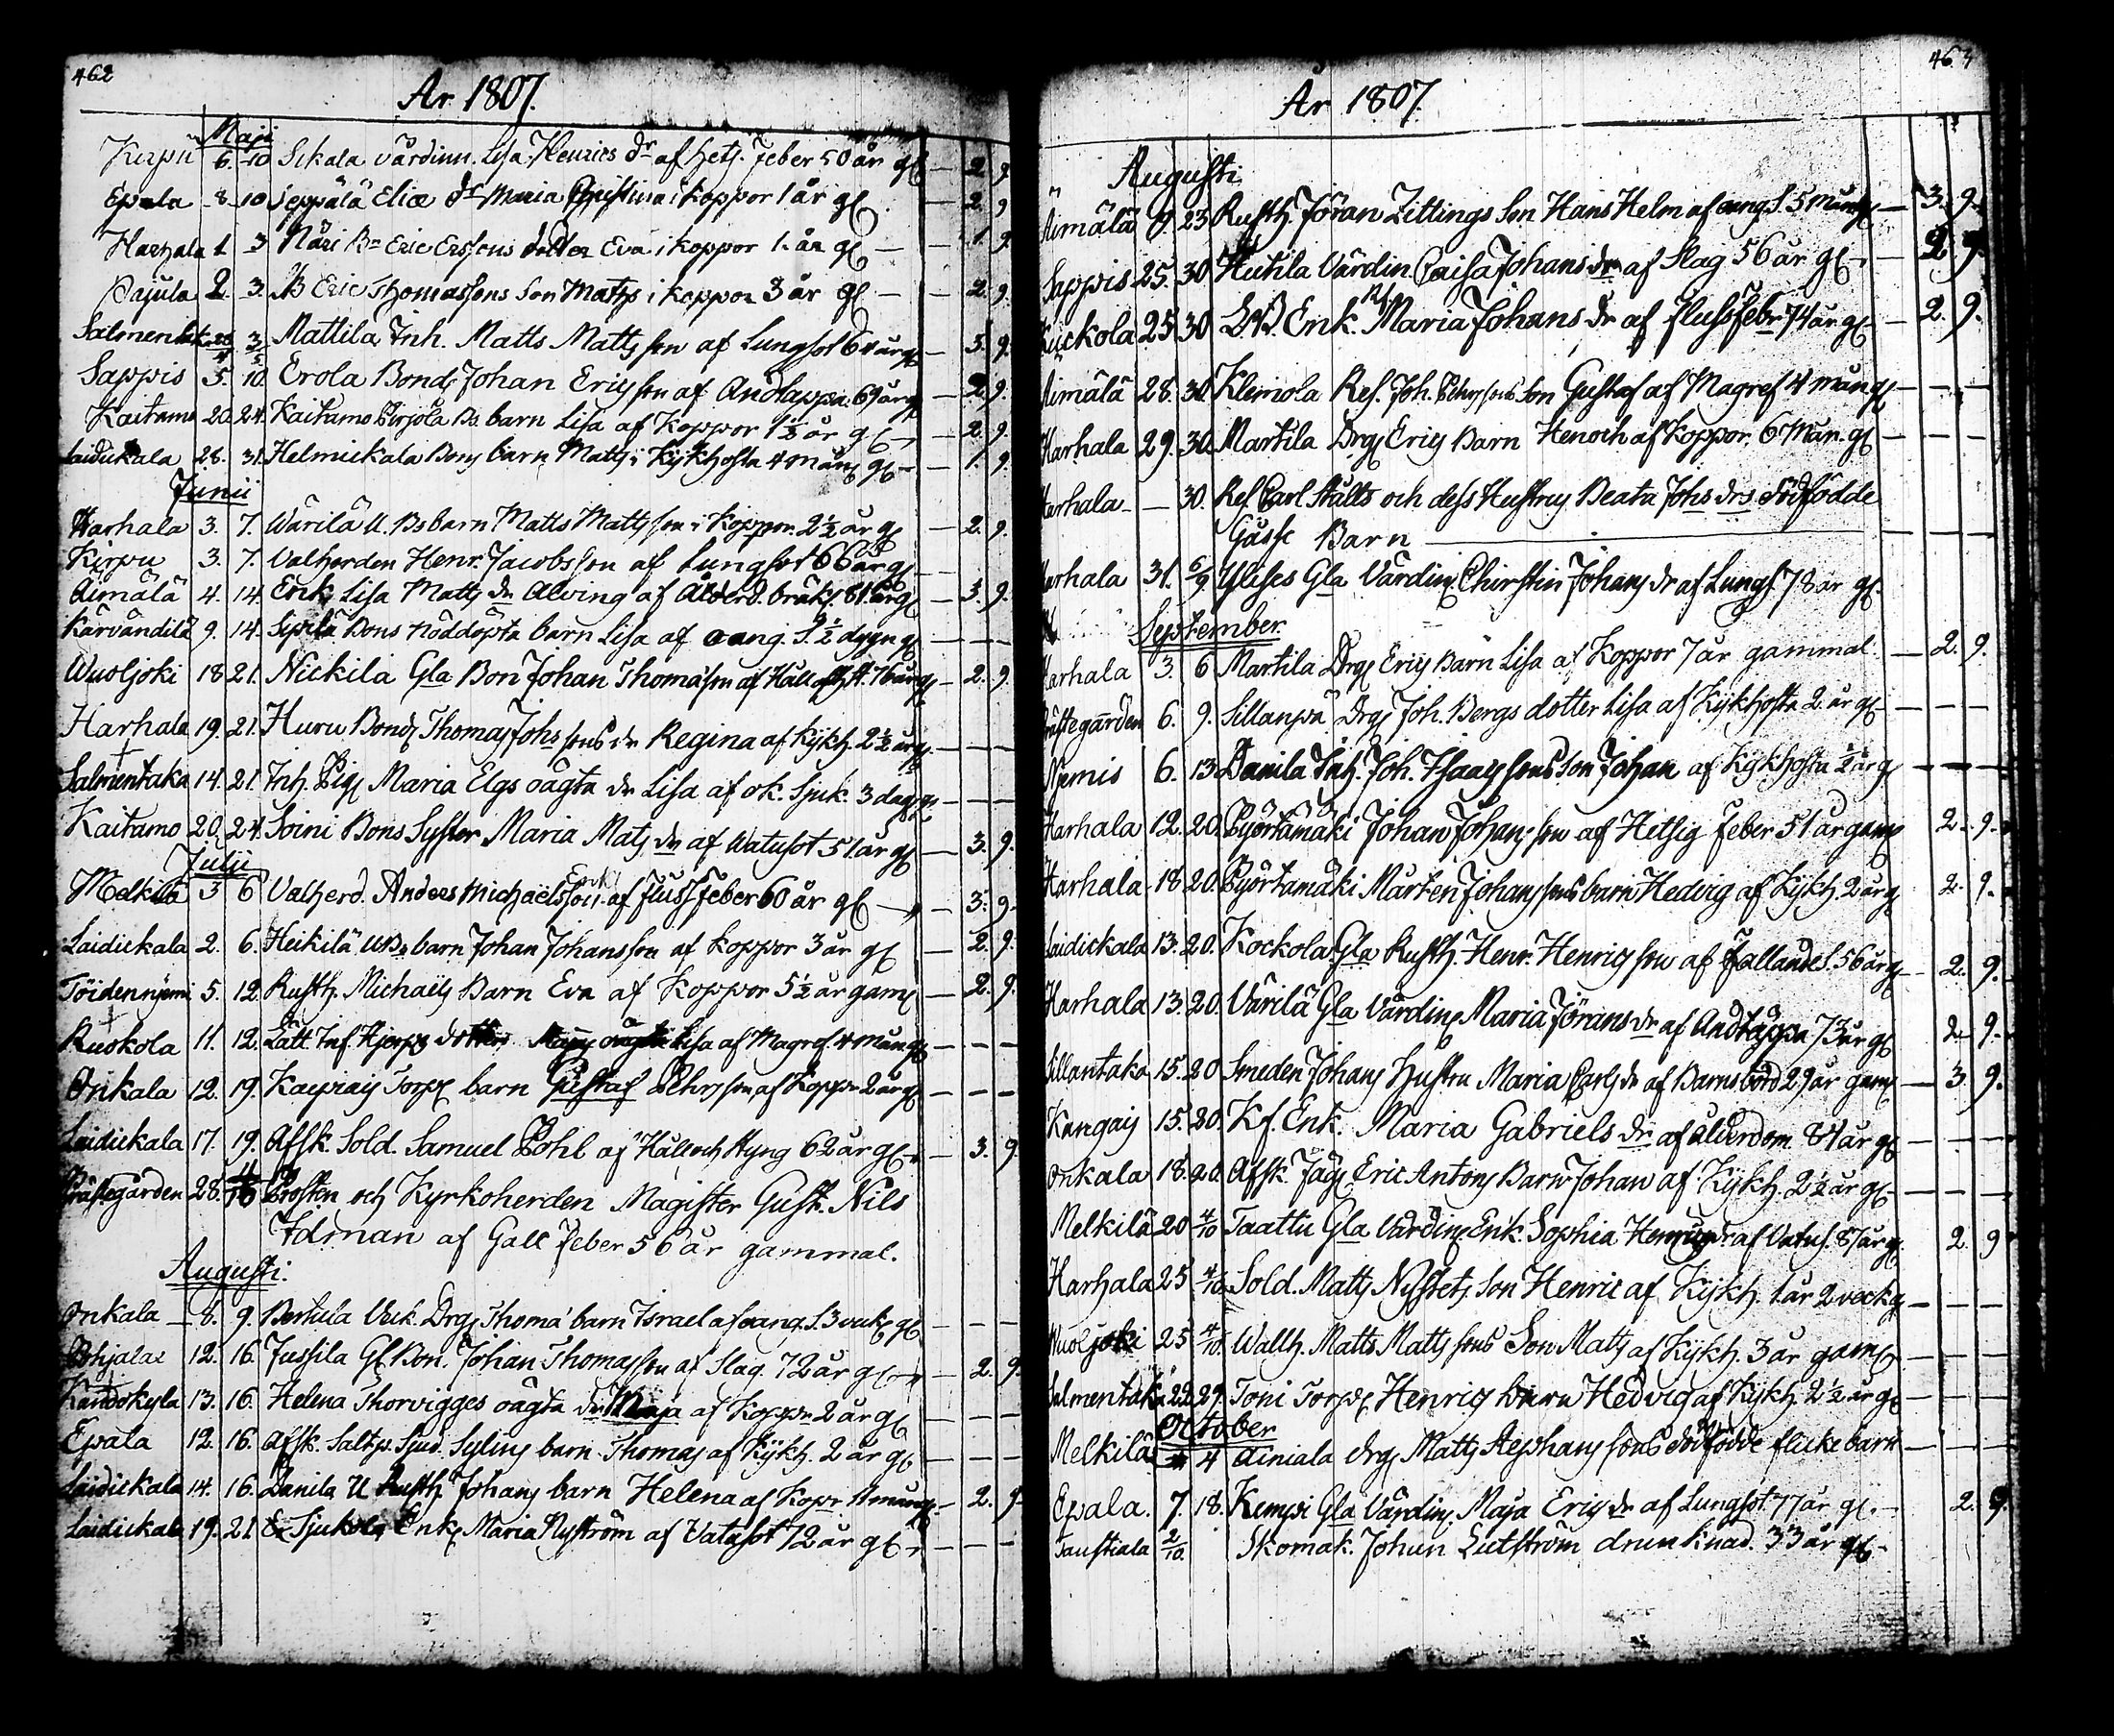 462
År 1807.
Maji
Kirpu 6. 10 Sikala värdinn. Lisa Henrics dr af hets. Feber 50 år gl — 2 9.
Epala 8. 10 Seppälä Eliæ dr Maria Christina i koppor 1 år gl — 2. 9
Harhala 1 3 Näri Bn Eric Ersons dotter Eva i koppor 1. år gl — 1. 9.
Pajula 2. 3. Eric Thomassons Son Matts i koppor 3 år gl — 2. 9.
Mattila Inh. Matts Mattsson af Lungsot 64 år gl — 3. 9.
Sappis 5. 10. Erola Bond. Johan Ericsson af Andtäppa. 69 år gl — 2. 9.
Kaitamo 20. 24. Kaitamo Pirjola Bs. barn Lisa af Koppor 1½ år gl — 2. 9.
Laidickala 28. 31. Helmickala Bons barn Matts i Kykhosta 4 mån gl — 1. 9.
Junii
Harhala 3. 7. Wärilä U. Bs barn Matts Mattsson i Koppor. 2½ år gl — 2. 9.
Kirpu 3. 7. Valherden Henr. Jacobsson af Lungsot 66 år gl —
Äimälä 4. 14. Enk. Lisa Matts dr Alving af Ålderd. bräkl. 81 år gl — 3. 9.
Kärvändilä 9. 14. Sipilä Bons nöddöpta barn Lisa af oang. S. ½ dygn gl — — —
Wuoljoki 18 21. Nickila Gla Bon Johan Thomasson af Håll och St. 76 år gl — 2. 9.
Harhala 19. 21. Huru Bond. Thomas Johs sons dr Regina af Kykh. 2½ år gl — — —
Salmentaka 14. 21. Inh. Pig. Maria Elgs oägta dr Lisa af ok. Sjuk. 3 dag. gl — — —
Kaitamo 20. 24. Soini Bons Syster Maria Mats dr af Watusot 51 år gl — 3. 9.
Julii
Melkilä 3 6 Valherd. Anders Michaëlsson Enk. af flussfeber 60 år gl — 3. 9.
Laidickala 2. 6. Heikilä U Bs barn Johan Johansson af koppor 3 år gl — 2. 9.
Töidennjemi 5. 12. Rusth. Michaëls Barn Eva af Koppor 5½ år gaml — 2. 9.
Ruokola 11. 12. Lätt Inf. Hjerps Lisa af Magref. 4 mån gl — — —
Onkala 12. 19. Torp. barn Gustaf Pehrsson af Koppr 2 år gl — — —
Laidickala 17. 19. Afsk. Sold. Samuel Pohl af Håll och Styng 62 år gl — 3. 9.
Prästegården 28. Prosten och Kyrkoherden Magister Gust. Nils
Idman af Gall Feber 56 år gammal.
Augusti.
Onkala — 8. 9. Bertula Drg. Thomæ barn Israel af oang. S. 3 veck gl — — —
Pohjalax 12. 16. Jussila Gl Bon. Johan Thomasson af Slag. 72 år gl — 2. 9.
Kandokyla 13. 16. Helena Thorvigges oägta dr Maja af Koppr 2 år gl — — —
Epala 12. 16. Afsk. Saltp. Sjud. Sylins barn Thomas af Kykh. 2 år gl — — —
Laidickala 14. 16. Danila U Rusth Johans barn Helena af Kopr 11 mån gl — 2. 9.
Laidickala 19. 21 Enk. Maria Nyström af Vatusot 72 år gl — — —
463
År 1807.
Augusti
Äimälä 9. 23 Rusth. Jöran Zittings Son Hans Helm af oang S. 5 mån gl — 3. 9.
Sappis 25. 30. Hutila Värdin Caisa Johans dr af Slag 56 år gl — 2. 9.
Kuckola 25 30 Enk. Maria Johans dr af flussfebr 74 år gl — 2. 9.
Äimälä 28. 30. Klemola Ref. Joh. Pehrssons Son Gustaf af Magref 4 mån gl — — —
Harhala 29. 30. Martila Drg. Erics Barn Henoch af Koppor. 6 Mån. gl — — —
Harhala — 30. Ref. Carl Stålts och dess Hustrus Beata Johs drs dödfödde
Gosse Barn — — —
Harhala 31. 6/9 Ylises Gla Värdin Chirstin Johans dr af Lungs. 78 år gl.
September
Harhala 3. 6 Martila Drg. Erics Barn Lisa af Koppor 7 år gammal — 2. 9.
Prästegården 6. 9. Sillanpä Drg. Joh. Bergs dotter Lisa af Kykhosta 2. år gl — — —
Njemis 6. 13 Danila Inh. Joh. Isaacssons son Johan af Kykhosta ½ år gl — — —
Harhala 12. 20. Pyörtämäki Johan Johansson af Hetsig feber 51 år gaml 2. 9.
Harhala 18. 20. Pyörtämäki Mårten Johanssons barn Hedvig af Kykh. 2 år gl 2. 9.
Laidickala 13. 20. Kockola Gla Rusth. Henr. Henricsson af Fallande S. 56 år gl — 2. 9.
Harhala 13. 20. Värilä Gla Värdin Maria Jörans dr af Andtäppa 73 år gl 2. 9.
Sillantaka 15. 20 Smeden Johans Hustru Maria Carls dr af Barnsbörd 29 år gaml — 3. 9.
Kangais 15. 20. Kf. Enk. Maria Gabriels dr af ålderdom 84 år gl — — —
Onkala 18. 20. Afsk. Jäg. Eric Antons Barn Johan af Kykh. 2½ år gl — — —
Melkilä 20 4/10 Taattu Gla Värdin. Enk. Sophia Henrics dr af Vatus. 87 år gl 2. 9
Harhala 25 4/10 Sold. Matts Nystets Son Henric af Kykh. 1 år 2 veck gl — — —
Wuoljoki 25 4/10. Wallh. Matts Mattssons Son Mats af Kykh. 3 år gaml — — —
Salmentaka 22 29. Toni Torp. Henrics barn Hedvig af Kykh. 2½ år gl — — —
October
Melkilä 4 Äiniala drg. Matts Stephanssons dödfödde flicke barn — — —
Epala. 7. 18. Kempi Gla Värdin. Maja Erics dr af Lungsot 77 år gl — 2. 9.
Taustiala 2/10. Skomak. Johan Lutström drunknad. 33 år gl